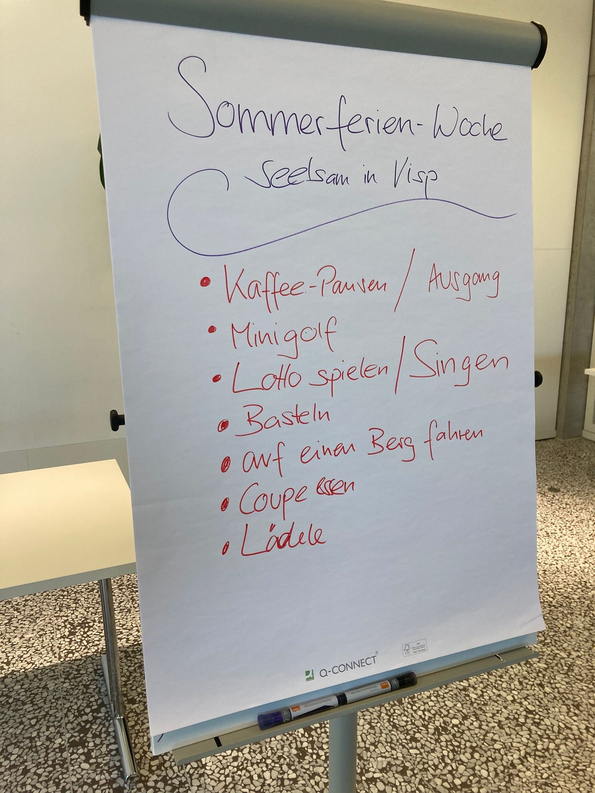 Sommerferien-Woche
Seelsam in Visp
• Kaffee-Pausen / Ausgang
• Minigolf
• Lotto spielen / Singen
• Basteln
• auf einen Berg fahren
• Coupe essen
• Lädele
Q-CONNECT
FSC